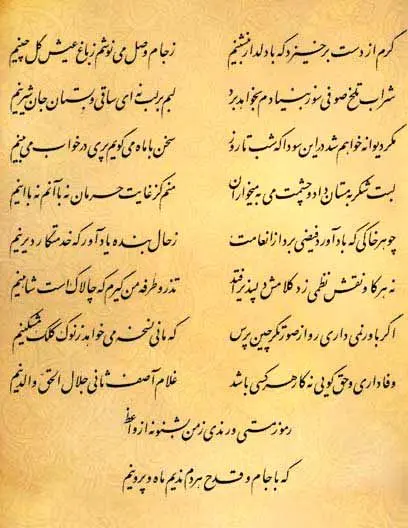 گرم از دست برخیزد که با دلدار بنشینم ز جام وصل می نوشم ز باغ عیش گل چینم
شراب تلخ صوفی سوز بنیادم بخواهد برد لبم بر لب نه ای ساقی و بستان جان شیرینم
مگر دیوانه خواهم شد در این سودا که شب تا روز سخن با ماه می گویم پری در خواب می بینم
لبت شکر به مستان داد و چشمت می به میخواران منم کز غایت حرمان نه با آنم نه با اینم
چو هر خاکی که باد آورد فیضی برد از انعامت ز حال بنده یاد آور که خدمتگار دیرینم
نه هر کاو نقش نظمی زد کلامش دلپذیر افتد تذرو طرفه من گیرم که چالاک است شاهینم
اگر باور نمی داری رو از صورتگر چین پرس که مانی نسخه می خواهد ز نوک کلک مشکینم
وفاداری و حق گویی نه کار هر کسی باشد غلام آصف ثانی جلال الحق و الدینم
رموز مستی و رندی ز من بشنو نه از واعظ
که با جام و قدح هر دم ندیم ماه و پروینم